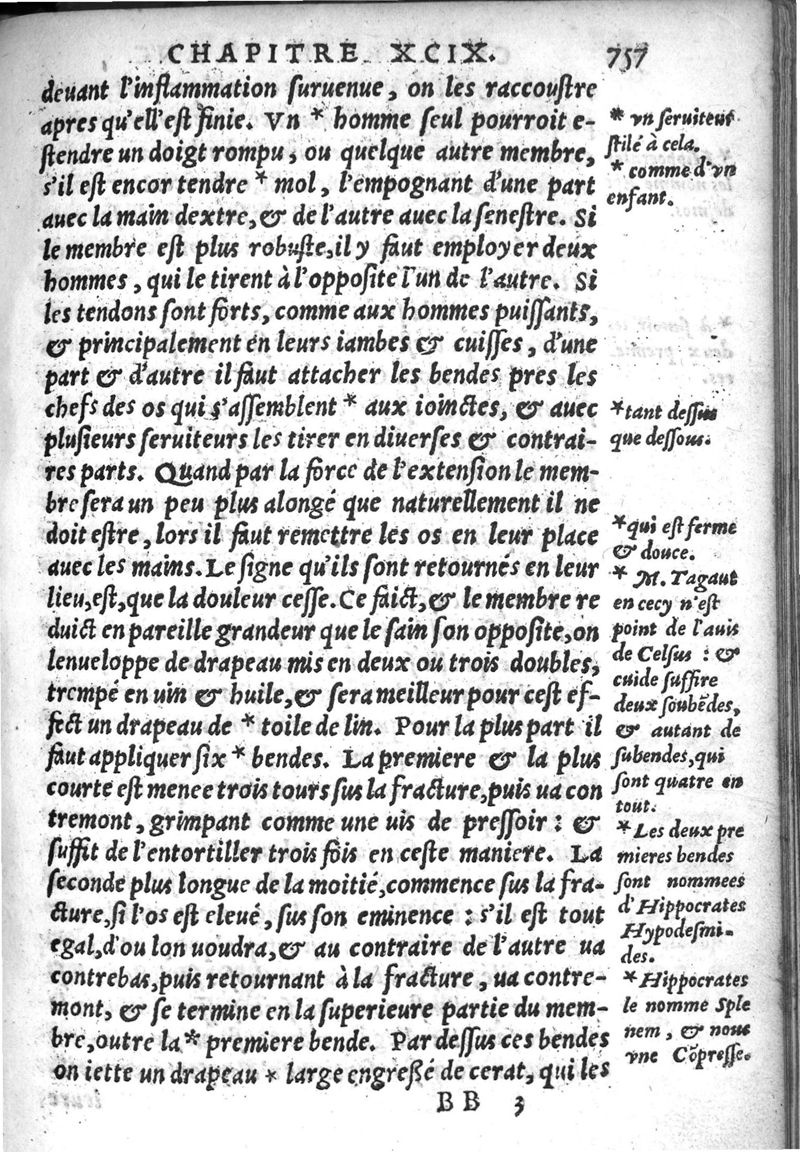 CHAPITRE XCIX. 757
deuant l'inflammation suruenue, on les raccoustre
apres qu'ell'est finie. Vn * homme seul pourroit e-
stendre un doigt rompu, ou quelque autre membre,
s'il est encor tendre * mol, l'empognant d'une part
auec la main dextre, & de l'autre auec la senestre. Si
le membre est plus robuste, il y faut employer deux
hommes, qui le tirent à l'opposite l'un de l'autre. Si
les tendons sont forts, comme aux hommes puissants,
& principalement en leurs iambes & cuisses, d'une
part & d'autre il faut attacher les bendes pres les
chefs des os qui s'assemblent * aux ioinctes, & auec
plusieurs seruiteurs les tirer en diuerses & contrai-
res parts. Quand par la force de l'extension le mem-
bre sera un peu plus alongé que naturellement il ne
doit estre, lors il faut remettre les os en leur place
auec les mains. Le signe qu'ils sont retournés en leur
lieu, est, que la douleur cesse. Ce faict, & le membre re
duict en pareille grandeur que le sain son opposite, on
lenueloppe de drapeau mis en deux ou trois doubles,
trempé en uin & huile, & sera meilleur pour cest ef-
fect un drapeau de * toile de lin. Pour la plus part il
faut appliquer six * bendes. La premiere & la plus
courte est menee trois tours sus la fracture, puis ua con
tremont, grimpant comme une uis de pressoir : &
suffit de l'entortiller trois fois en ceste maniere. La
seconde plus longue de la moitié, commence sus la fra-
cture, si l'os est eleué, sus son eminence : s'il est tout
egal, d'ou lon uoudra, & au contraire de l'autre ua
contrebas, puis retournant à la fracture, ua contre-
mont, & se termine en la superieure partie du mem-
bre, outre la * premiere bende. Par dessus ces bendes
on iette un drapeau * large engressé de cerat, qui les
BB 3
* vn seruiteur
stilé à cela.
* comme d'vn
enfant.
*tant dessus
que dessous.
*qui est ferme
& douce.
* M. Tagaut
en cecy n'est
point de l'auis
de Celsus : &
cuide suffire
deux soubēdes,
& autant de
subendes, qui
sont quatre en
tout.
*Les deux pre
mieres bendes
sont nommees
d'Hippocrates
Hypodesmi-
des.
*Hippocrates
le nomme Sple
nem, & nous
vne Cōpresse.